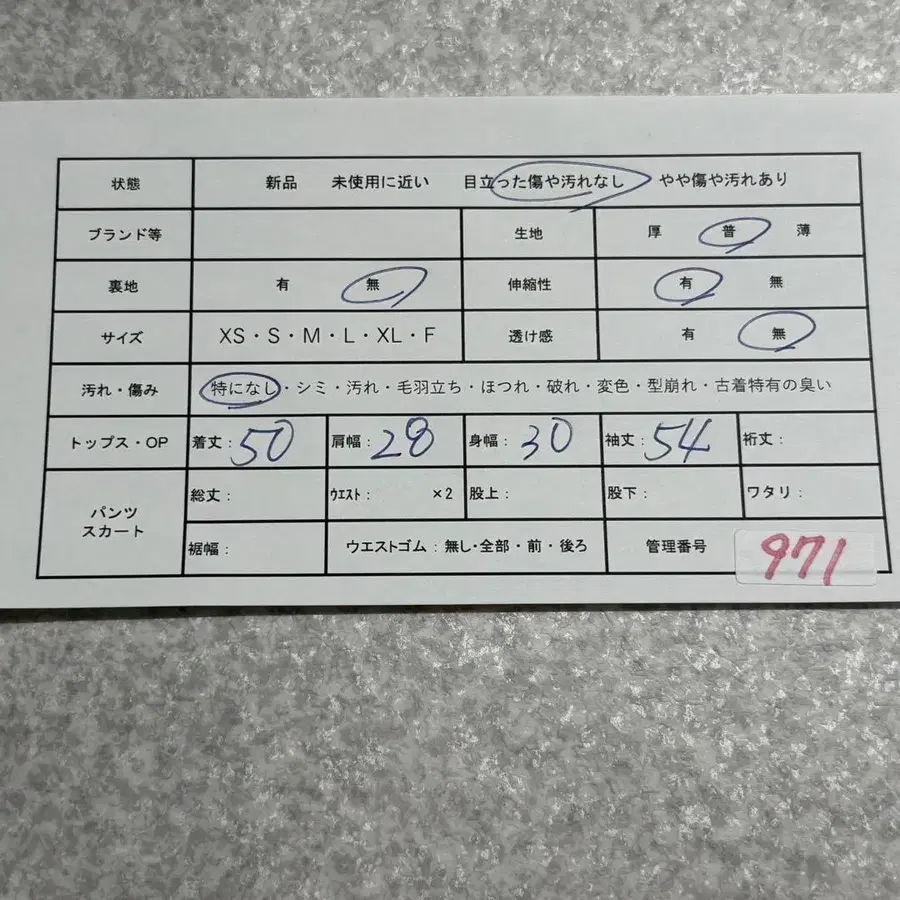 状態 新品 未使用に近い 目立った傷や汚れなし やや傷や汚れあり
ブランド等 生地 厚 普 薄
裏地 有 無 伸縮性 有 無
サイズ XS・S・M・L・XL・F 透け感 有 無
汚れ・傷み 特になし・シミ・汚れ・毛羽立ち・ほつれ・破れ・変色・型崩れ・古着特有の臭い
トップス・OP 着丈：50 肩幅：28 身幅：30 袖丈：54 裄丈：
パンツ スカート 総丈： ｳｴｽﾄ： ×2 股上： 股下： ワタリ：
裾幅： ウエストゴム：無し・全部・前・後ろ 管理番号 971